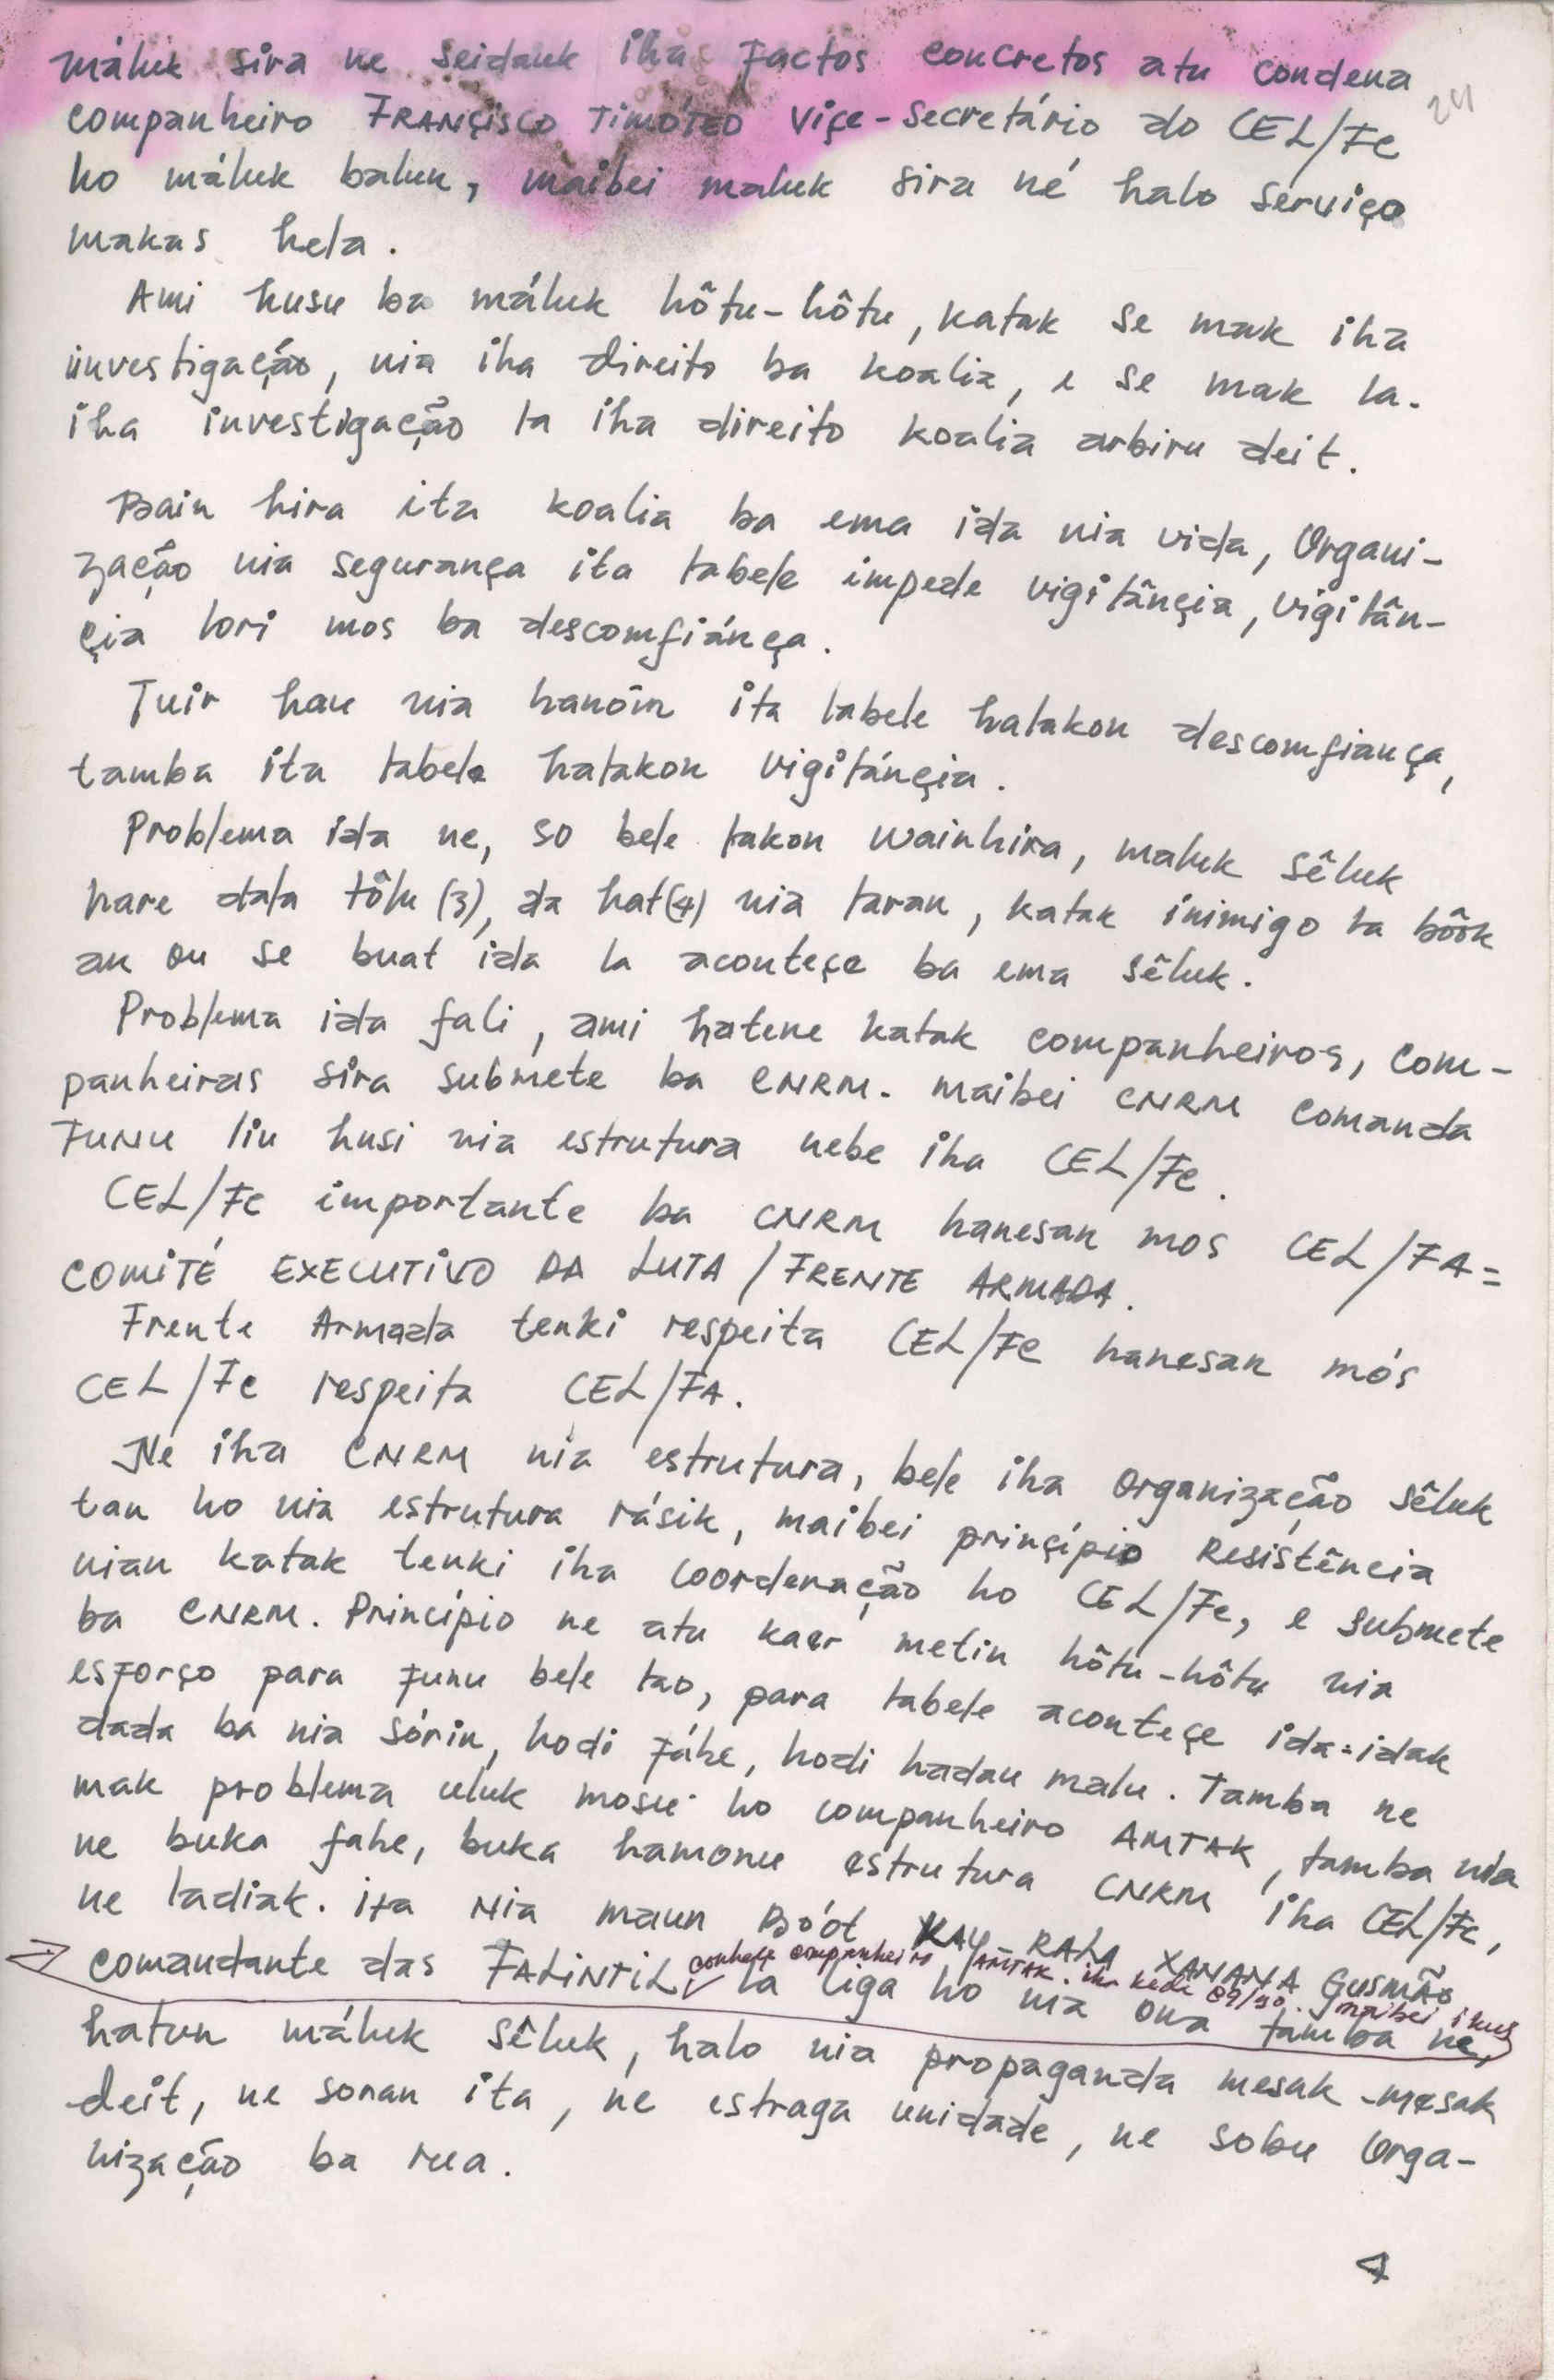 máluk sira ne seidauk iha factos concretos atu condena
24
companheiro FRANÇISCO TIMÓTEO Viçe-Secretário do CEL/FC
ho máluk balun, maibei maluk sira né halo serviço
makas hela.
Ami husu ba máluk hôtu-hôtu, katak se mak iha
investigação, nia iha direito ba koalia, e se mak la-
iha investigação la iha direito koalia arbiru deit.
Bain hira ita koalia ba ema ida nia vida, Organi-
zação nia segurança ita labele impede vigilânçia, vigilân-
çia lori mos ba descomfiánça.
Tuir hau nia hanôin ita labele halakon descomfiança,
tamba ita labele halakon vigilánçia.
Problema ida ne, so bele lakon wainhira, maluk sêluk
hare dala tôlu (3), da hat (4) nia laran, katak inimigo la bôok
an ou se buat ida la aconteçe ba ema sêluk.
Problema ida fali, ami hatene katak companheiros, com-
panheiras sira submete ba CNRM. maibei CNRM comanda
FUNU liu husi nia estrutura nebe iha CEL/FC.
CEL/FC importante ba CNRM hanesan mos CEL/FA=
COMITÉ EXECUTIVO DA LUTA/FRENTE ARMADA.
Frente Armada tenki respeita CEL/FC hanesan mós
CEL/FC respeita CEL/FA.
Né iha CNRM nia estrutura, bele iha Organização sêluk
tan ho nia estrutura rásik, maibei prinçípio Resistência
nian katak tenki iha Coordenação ho CEL/FC, e submete
ba CNRM. Princípio ne atu kaer metin hôtu-hôtu nia
esforço para funu bele lao, para labele aconteçe ida-idak
dada ba nia sórin, hodi fáhe, hodi hadau malu. Tamba ne
mak problema uluk mosu ho companheiro AMTAK, tamba nia
ne buka fahe, buka hamonu estrutura CNRM iha CEL/FC,
ne ladiak. ita Nia maun Bo'ot KAY-RALA XANANA GUSMÃO
conhece companheiro AMTAK. iha kedi 89/90. maibei ikus
Comandante das FALINTIL la liga ho nia ona tamba ne,
hatun máluk sêluk, halo nia propaganda mesak-mesak
deit, ne sonan ita, ne estraga unidade, ne sobu Orga-
nização ba rua.
4